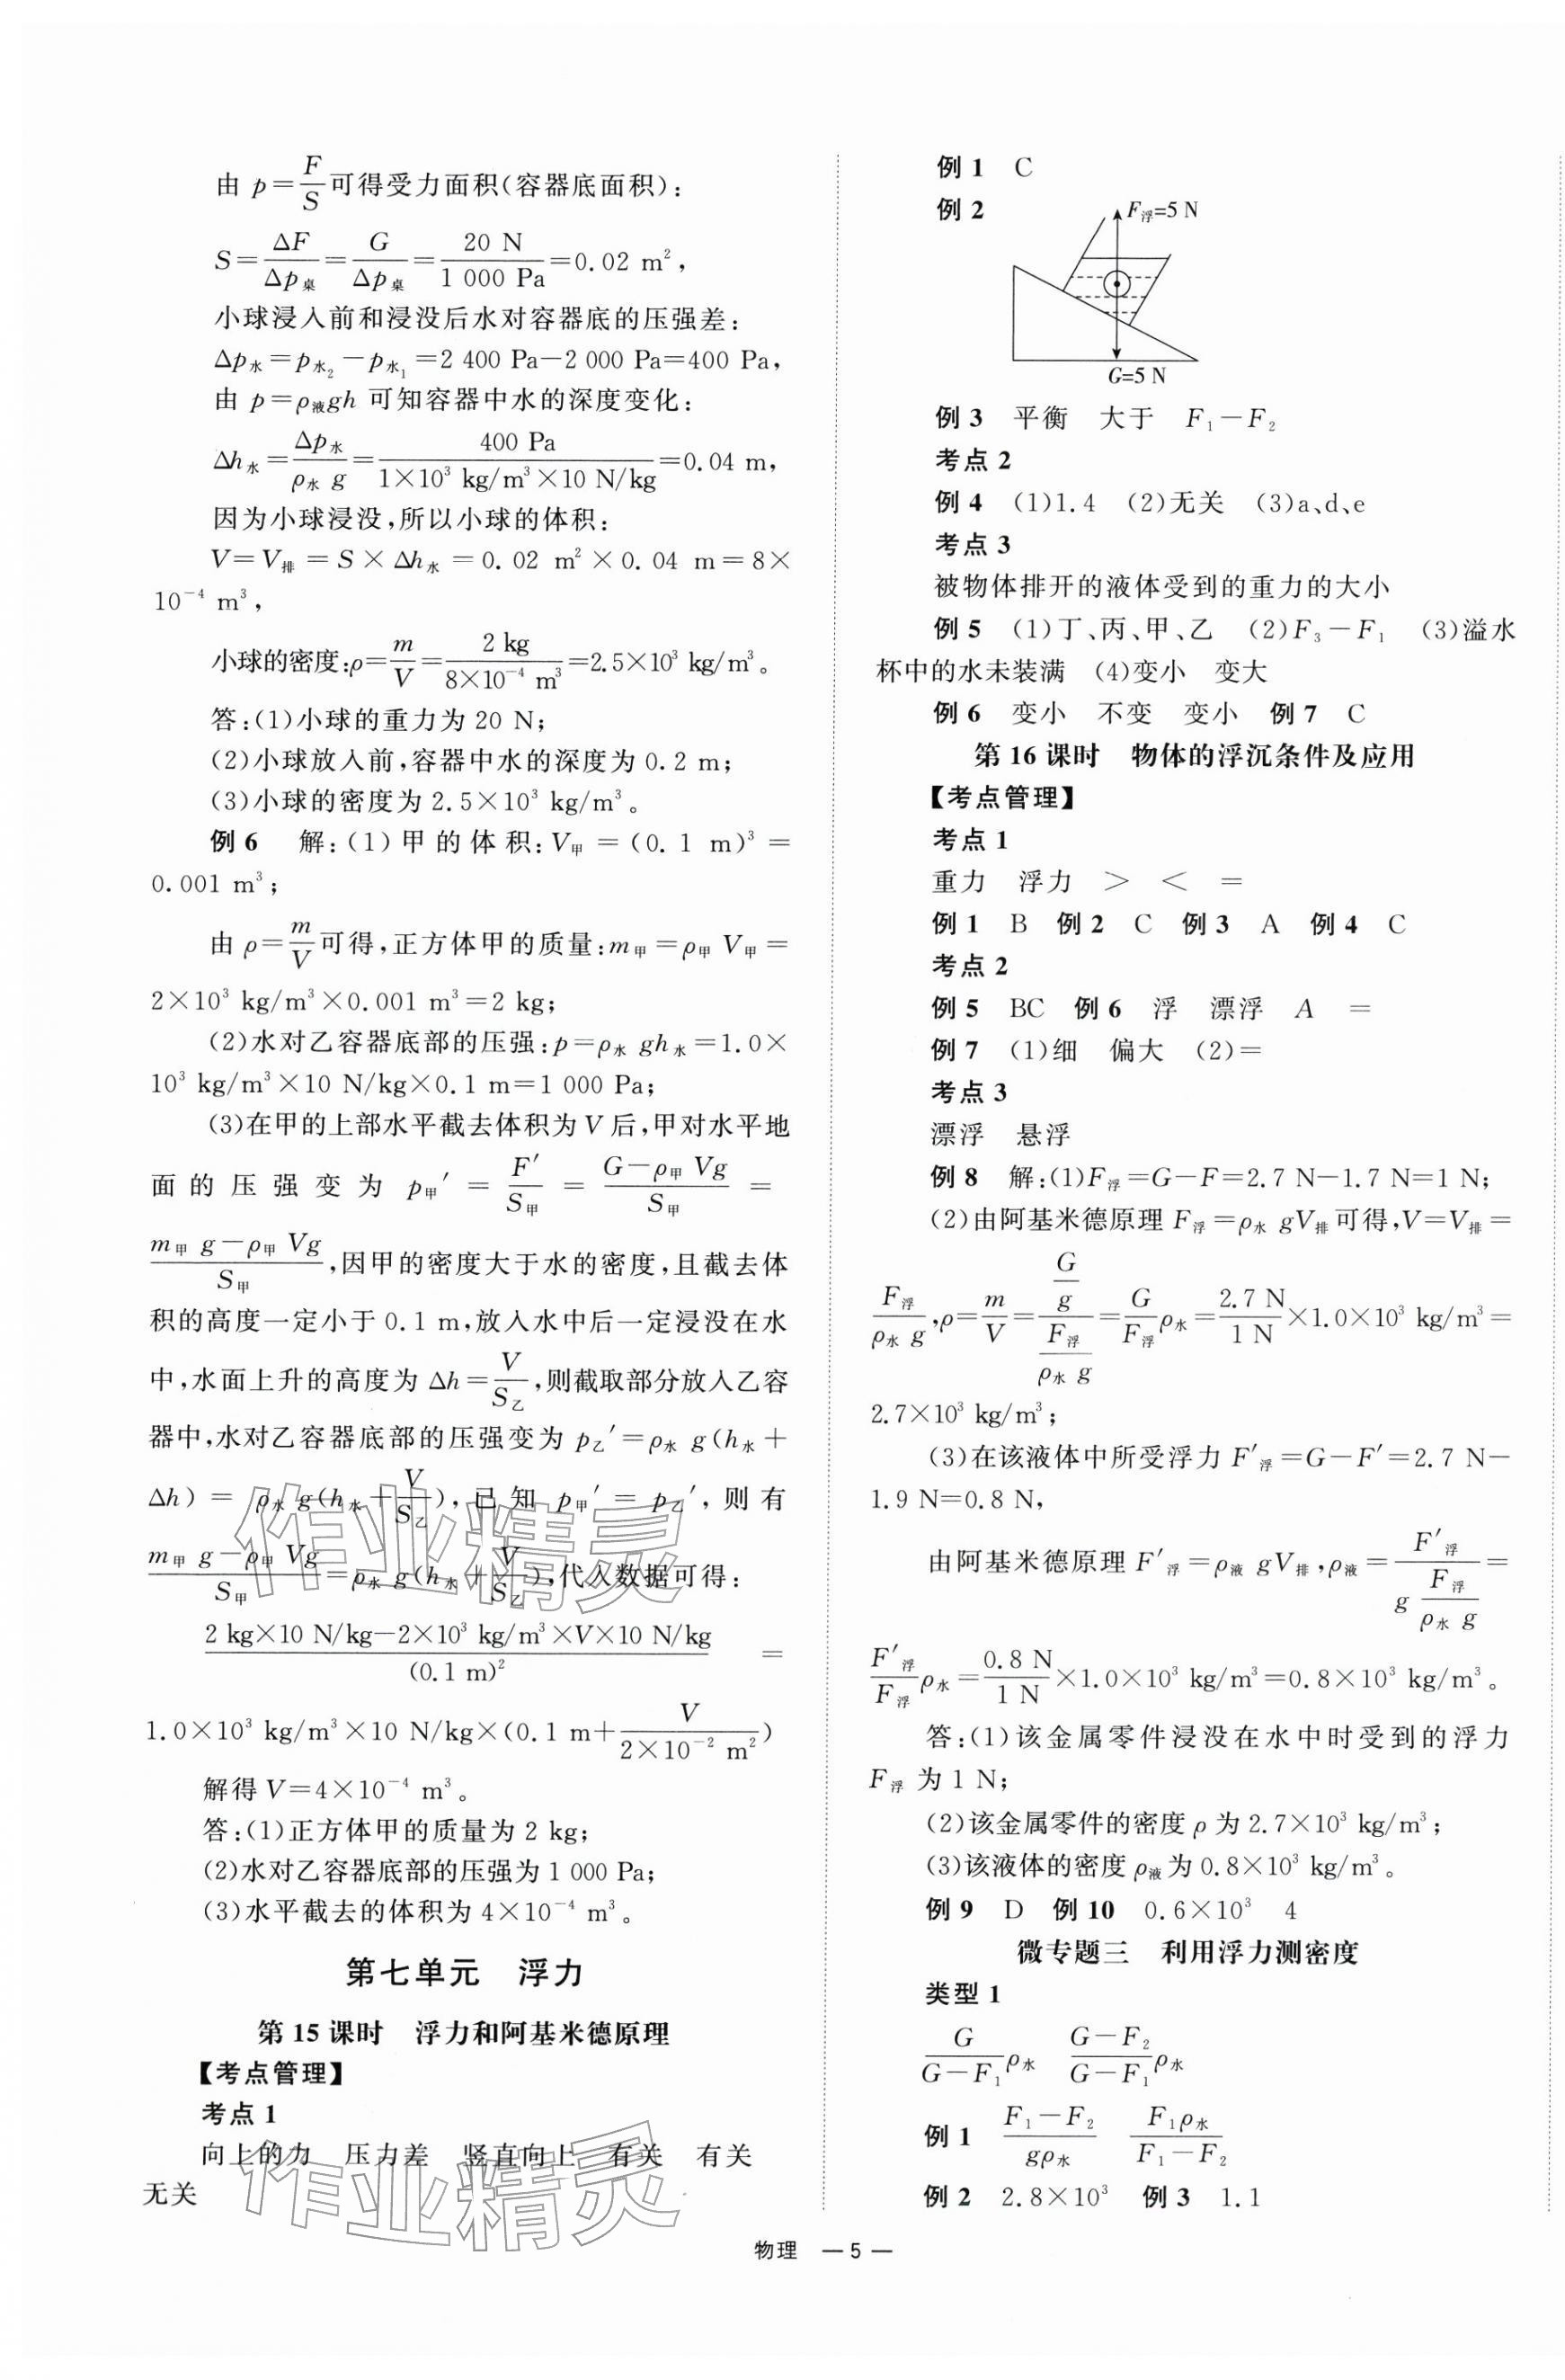 由 p=F/S可得受力面积(容器底面积):
S=ΔF/Δp桌=G/Δp桌=20 N/1 000 Pa=0.02 m²,
小球浸入前和浸没后水对容器底的压强差:
Δp水=p水₂-p水₁=2 400 Pa-2 000 Pa=400 Pa,
由 p=ρ液gh 可知容器中水的深度变化:
Δh水=Δp水/(ρ水 g)=400 Pa/(1×10³ kg/m³×10 N/kg)=0.04 m,
因为小球浸没,所以小球的体积:
V=V排=S×Δh水=0.02 m²×0.04 m=8×
10⁻⁴ m³,
小球的密度:ρ=m/V=2 kg/(8×10⁻⁴ m³)=2.5×10³ kg/m³。
答:(1)小球的重力为 20 N;
(2)小球放入前,容器中水的深度为 0.2 m;
(3)小球的密度为 2.5×10³ kg/m³。
例 6 解:(1)甲的体积:V甲=(0.1 m)³=
0.001 m³;
由 ρ=m/V可得,正方体甲的质量:m甲=ρ甲 V甲=
2×10³ kg/m³×0.001 m³=2 kg;
(2)水对乙容器底部的压强:p=ρ水 gh水=1.0×
10³ kg/m³×10 N/kg×0.1 m=1 000 Pa;
(3)在甲的上部水平截去体积为 V 后,甲对水平地
面的压强变为 p甲′=F′/S甲=(G-ρ甲 Vg)/S甲=
(m甲 g-ρ甲 Vg)/S甲,因甲的密度大于水的密度,且截去体
积的高度一定小于 0.1 m,放入水中后一定浸没在水
中,水面上升的高度为 Δh=V/S乙,则截取部分放入乙容
器中,水对乙容器底部的压强变为 p乙′=ρ水 g(h水+
Δh)=ρ水 g(h水+V/S乙),已知 p甲′=p乙′,则有
(m甲 g-ρ甲 Vg)/S甲=ρ水 g(h水+V/S乙),代入数据可得:
(2 kg×10 N/kg-2×10³ kg/m³×V×10 N/kg)/(0.1 m)²=
1.0×10³ kg/m³×10 N/kg×(0.1 m+V/(2×10⁻² m²))
解得 V=4×10⁻⁴ m³。
答:(1)正方体甲的质量为 2 kg;
(2)水对乙容器底部的压强为 1 000 Pa;
(3)水平截去的体积为 4×10⁻⁴ m³。
第七单元 浮力
第 15 课时 浮力和阿基米德原理
【考点管理】
考点 1
向上的力 压力差 竖直向上 有关 有关
无关
例 1 C
例 2
F浮=5 N
G=5 N
例 3 平衡 大于 F₁-F₂
考点 2
例 4 (1)1.4 (2)无关 (3)a、d、e
考点 3
被物体排开的液体受到的重力的大小
例 5 (1)丁、丙、甲、乙 (2)F₃-F₁ (3)溢水
杯中的水未装满 (4)变小 变大
例 6 变小 不变 变小 例 7 C
第 16 课时 物体的浮沉条件及应用
【考点管理】
考点 1
重力 浮力 > < =
例 1 B 例 2 C 例 3 A 例 4 C
考点 2
例 5 BC 例 6 浮 漂浮 A =
例 7 (1)细 偏大 (2)=
考点 3
漂浮 悬浮
例 8 解:(1)F浮=G-F=2.7 N-1.7 N=1 N;
(2)由阿基米德原理 F浮=ρ水 gV排可得,V=V排=
F浮/(ρ水 g),ρ=m/V=(G/g)/(F浮/(ρ水 g))=G/F浮 ρ水=2.7 N/1 N×1.0×10³ kg/m³=
2.7×10³ kg/m³;
(3)在该液体中所受浮力 F′浮=G-F′=2.7 N-
1.9 N=0.8 N,
由阿基米德原理 F′浮=ρ液 gV排,ρ液=F′浮/(g F浮/(ρ水 g))=
F′浮/F浮 ρ水=0.8 N/1 N×1.0×10³ kg/m³=0.8×10³ kg/m³。
答:(1)该金属零件浸没在水中时受到的浮力
F浮 为 1 N;
(2)该金属零件的密度 ρ 为 2.7×10³ kg/m³;
(3)该液体的密度 ρ液为 0.8×10³ kg/m³。
例 9 D 例 10 0.6×10³ 4
微专题三 利用浮力测密度
类型 1
G/(G-F₁) ρ水 (G-F₂)/(G-F₁) ρ水
例 1 (F₁-F₂)/(gρ水) F₁ρ水/(F₁-F₂)
例 2 2.8×10³ 例 3 1.1
物理 — 5 —
作业精灵
作业精灵